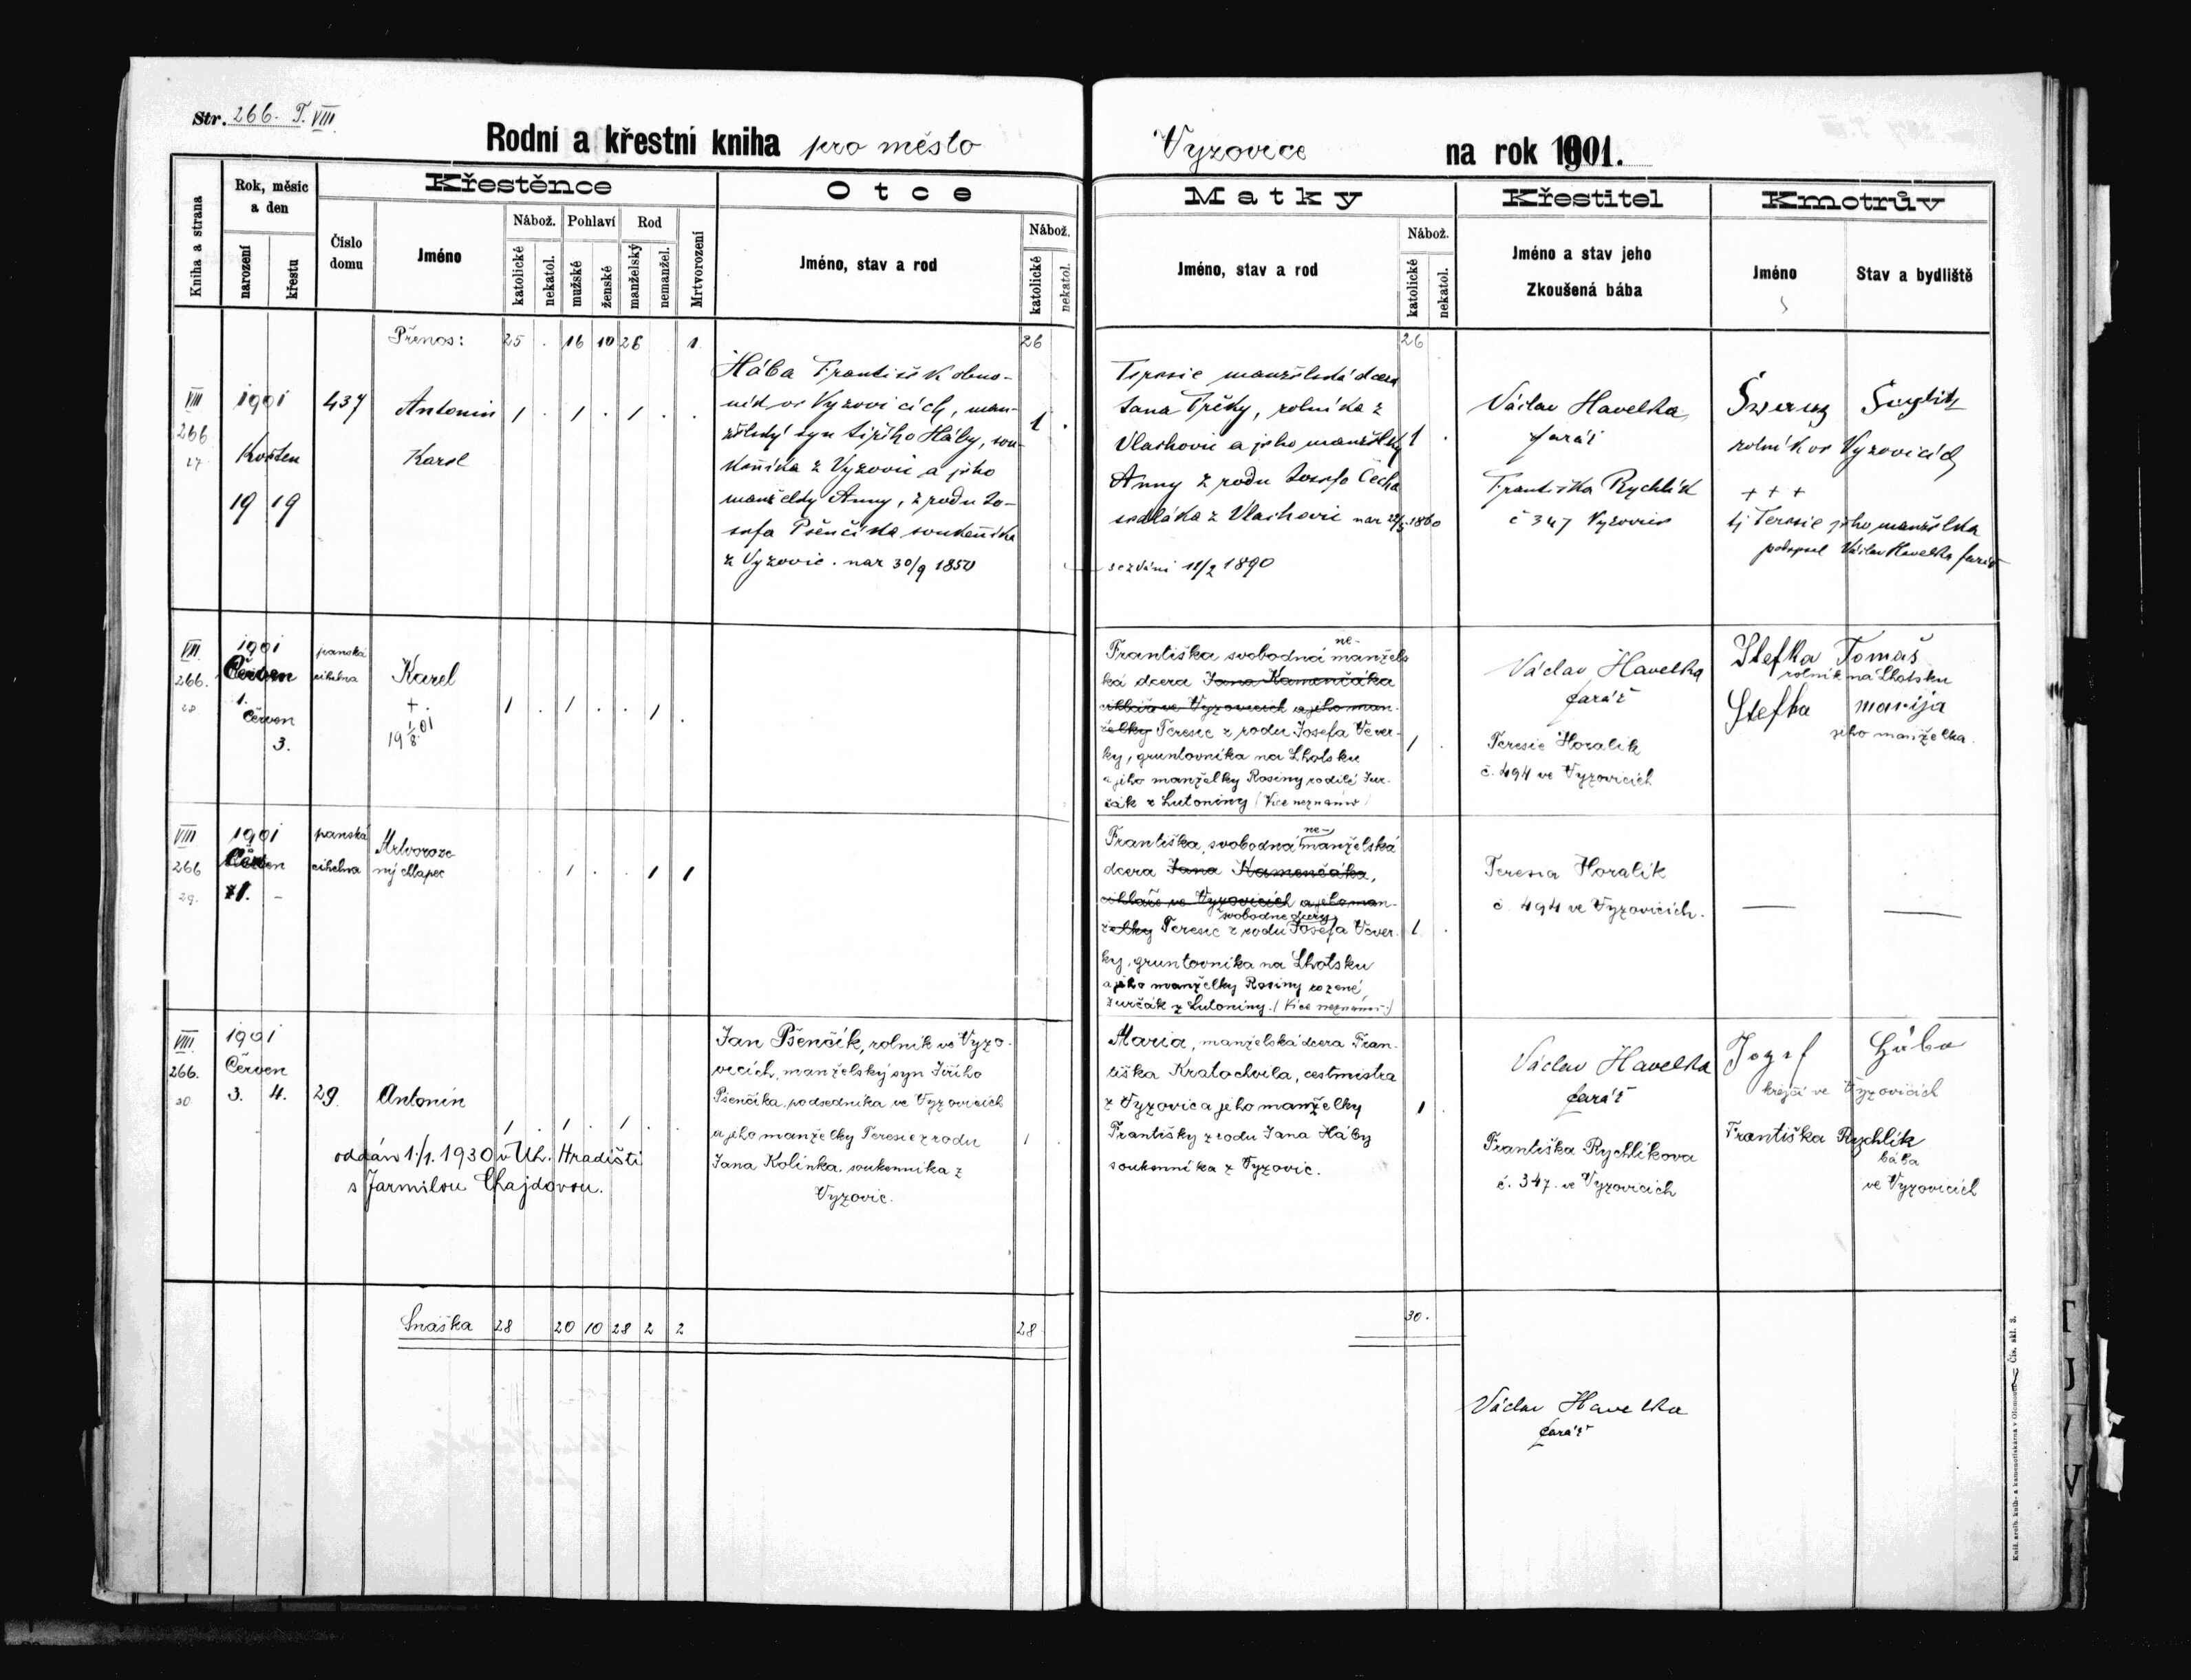 Str. 266. T. VIII
Rodní a křestní kniha pro město
Vyzovice na rok 1901.
Kniha a strana
Rok, měsíc a den
narození
křestu
Křestěnce
Číslo domu
Jméno
Nábož.
katolické
nekatol.
Pohlaví
mužské
ženské
Rod
manželský
nemanžel.
Mrtvorození
Otce
Jméno, stav a rod
Nábož.
katolické
nekatol.
Matky
Jméno, stav a rod
Nábož.
katolické
nekatol.
Křestitel
Jméno a stav jeho
Zkoušená bába
Kmotrův
Jméno
Stav a bydliště
Přenos: 25 . 16 10 26 1. 26 26
VIII
266
27
1901
Květen
19 19
437
Antonin
Karel
1 . 1 . 1 . .
Hába František obuv-
ník ve Vyzovicích, man-
želský syn Jiřího Háby, sou-
keníka z Vyzovic a jeho
manželky Anny, z rodu Jo-
sefa Pšenčíka soukeníka
z Vyzovic. nar 30/9 1850
1 .
Teresie manželská dcera
Jana Trčky, rolníka z
Vlachovic a jeho manželky
Anny z rodu Josefa Čecha
sedláka z Vlachovic nar 1860
sezdáni 11/2 1890
1 .
Václav Havelka
farář
Františka Rychlik
č 347 Vyzovice
rolník ve Vyzovicích
+ + +
tj Teresie jeho manželka
podepsal Václav Havelka farář
VIII.
266.
28
1901
Červen
1.
Červen
3.
panská
cihelna
Karel
+
19 1/8 01
1 . 1 . . 1 .
Františka svobodná ne-
manžels
ká dcera Jana Kamenčáka
cihláře ve Vyzovicích a jeho man-
želky Teresie z rodu Josefa Vever-
ky, gruntovníka na Lhotsku
a jeho manželky Rosiny rodilé Jur-
čák z Lutoniny (Více neznámo)
1 .
Václav Havelka
farář
Teresie Horalik
č. 494 ve Vyzovicích
Stefka Tomáš
rolník na Lhotsku
Stefka marija
jeho manželka.
VIII
266
29.
1901
Červen
1. -
panská
cihelna
Mrtvoroze-
ný chlapec
. . 1 . . 1 1
Františka, svobodná ne-
manželská
dcera Jana Kamenčáka,
cihláře ve Vyzovicích a jeho man-
svobodné dcery
želky Teresie z rodu Josefa Vever-
ky, gruntovníka na Lhotsku
a jeho manželky Rosiny rozené
Jurčák z Lutoniny. (Více neznámo.)
1 .
Teresia Horalik
č. 494 ve Vyzovicích.
— —
VIII.
266.
30
1901
Červen
3. 4.
29.
Antonin
1 . 1 . 1 . .
oddán 1./1. 1930 v Uh. Hradišti
s Jarmilou Chajdovou.
Jan Pšenčík, rolník ve Vyzo-
vicích, manželský syn Jiřího
Pšenčíka, podsedníka ve Vyzovicích
a jeho manželky Teresie z rodu
Jana Kolinka, soukenníka z
Vyzovic.
1 .
Maria, manželská dcera Fran-
tiška Kratochvila, cestmistra
z Vyzovic a jeho manželky
Františky z rodu Jana Háby
soukenníka z Vyzovic.
1 .
Václav Havelka
farář
Františka Rychlikova
č. 347. ve Vyzovicích
Jozef Hába
krejčí ve Vyzovicích
Františka Rychlik
bába
ve Vyzovicích
Snáška 28 20 10 28 2 2 28 30.
Václav Havelka
farář